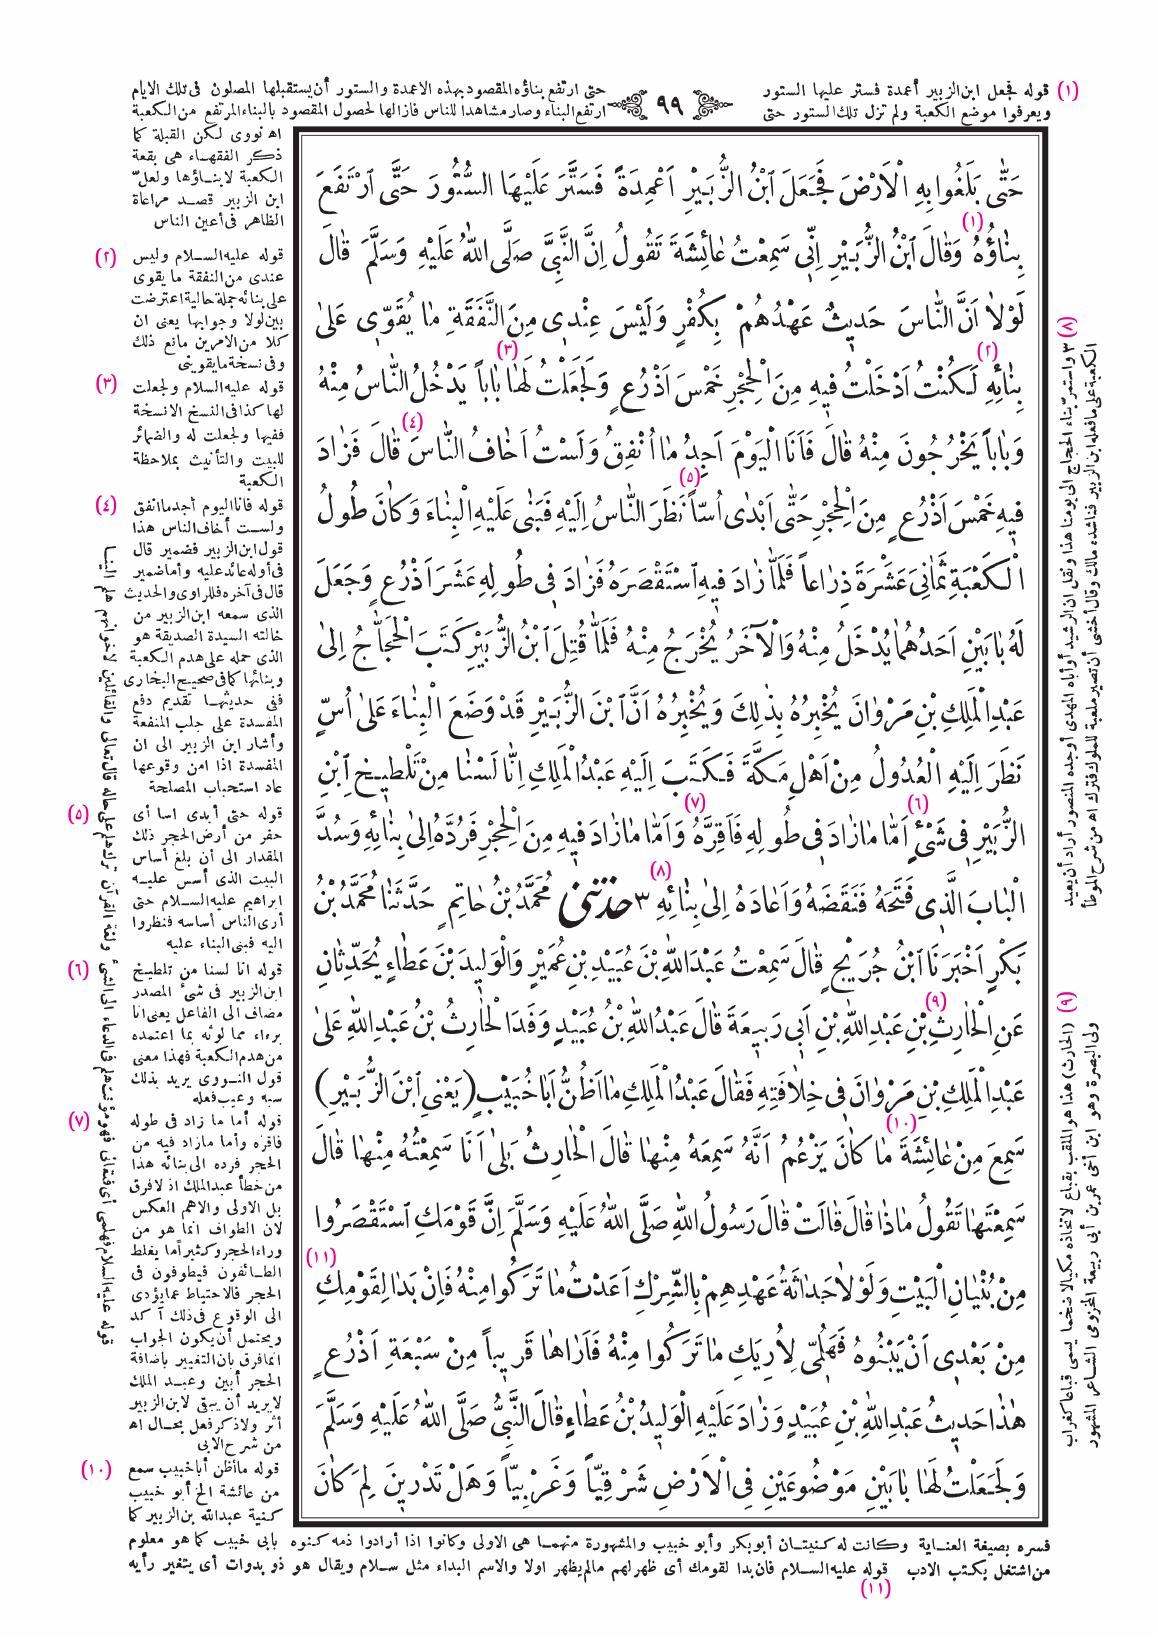 ٩٩
حَتّٰى بَلَغُوا بِهِ الْاَرْضَ فَجَعَلَ ابْنُ الزُّبَيْرِ اَعْمِدَةً فَسَتَّرَ عَلَيْهَا السُّتُورَ حَتَّى ارْتَفَعَ
بِنَاؤُهُ (١) وَقَالَ ابْنُ الزُّبَيْرِ اِنّى سَمِعْتُ عَائِشَةَ تَقُولُ اِنَّ النَّبِىَّ صَلَّى اللّٰهُ عَلَيْهِ وَسَلَّمَ قَالَ
لَوْلاٰ اَنَّ النَّاسَ حَديثٌ عَهْدُهُمْ بِكُفْرٍ وَلَيْسَ عِنْدى مِنَ النَّفَقَةِ مٰا يُقَوّى عَلىٰ
بِنَائِهِ (٢) لَكُنْتُ اَدْخَلْتُ فيهِ مِنَ الْحِجْرِ خَمْسَ اَذْرُعٍ وَلَجَعَلْتُ (٣) لَهَا بَاباً يَدْخُلُ النَّاسُ مِنْهُ
وَبَاباً يَخْرُجُونَ مِنْهُ قَالَ فَاَنَا الْيَوْمَ اَجِدُ مَا اُنْفِقُ وَلَسْتُ اَخَافُ النَّاسَ (٤) قَالَ فَزَادَ
فيهِ خَمْسَ اَذْرُعٍ مِنَ الْحِجْرِ حَتّٰى اَبْدٰى اُسّاً (٥) نَظَرَ النَّاسُ اِلَيْهِ فَبَنٰى عَلَيْهِ الْبِنَاءَ وَكَانَ طُولُ
الْكَعْبَةِ ثَمَانِىَ عَشْرَةَ ذِرَاعاً فَلَمّٰا زَادَ فيهِ اسْتَقْصَرَهُ فَزَادَ فى طُولِهِ عَشَرَ اَذْرُعٍ وَجَعَلَ
لَهُ بَابَيْنِ اَحَدُهُمَا يُدْخَلُ مِنْهُ وَالْآخَرُ يُخْرَجُ مِنْهُ فَلَمّٰا قُتِلَ ابْنُ الزُّبَيْرِ كَتَبَ الْحَجَّاجُ اِلىٰ
عَبْدِ الْمَلِكِ بْنِ مَرْوَانَ يُخْبِرُهُ بِذٰلِكَ وَيُخْبِرُهُ اَنَّ ابْنَ الزُّبَيْرِ قَدْ وَضَعَ الْبِنَاءَ عَلىٰ اُسٍّ
نَظَرَ اِلَيْهِ الْعُدُولُ مِنْ اَهْلِ مَكَّةَ فَكَتَبَ اِلَيْهِ عَبْدُ الْمَلِكِ اِنّٰا لَسْنَا مِنْ تَلْطيخِ ابْنِ
الزُّبَيْرِ فى شَىْءٍ (٦) اَمّٰا مٰا زَادَ فى طُولِهِ فَاَقِرَّهُ (٧) وَاَمّٰا مٰا زَادَ فيهِ مِنَ الْحِجْرِ فَرُدَّهُ اِلىٰ بِنَائِهِ وَسُدَّ
الْبَابَ الَّذى فَتَحَهُ فَنَقَضَهُ وَاَعَادَهُ اِلىٰ بِنَائِهِ (٨) ٣ حَدَّثَنى مُحَمَّدُ بْنُ حَاتِمٍ حَدَّثَنَا مُحَمَّدُ بْنُ
بَكْرٍ اَخْبَرَنَا ابْنُ جُرَيْجٍ قَالَ سَمِعْتُ عَبْدَ اللّٰهِ بْنَ عُبَيْدِ بْنِ عُمَيْرٍ وَالْوَليدَ بْنَ عَطَاءٍ يُحَدِّثَانِ
عَنِ الْحَارِثِ بْنِ (٩) عَبْدِ اللّٰهِ بْنِ اَبى رَبيعَةَ قَالَ عَبْدُ اللّٰهِ بْنُ عُبَيْدٍ وَفَدَ الْحَارِثُ بْنُ عَبْدِ اللّٰهِ عَلىٰ
عَبْدِ الْمَلِكِ بْنِ مَرْوَانَ فى خِلَافَتِهِ فَقَالَ عَبْدُ الْمَلِكِ مَا اَظُنُّ اَبَا خُبَيْبٍ (يَعْنِى ابْنَ الزُّبَيْرِ)
سَمِعَ مِنْ عَائِشَةَ (١٠) مٰا كَانَ يَزْعُمُ اَنَّهُ سَمِعَهُ مِنْهَا قَالَ الْحَارِثُ بَلىٰ اَنَا سَمِعْتُهُ مِنْهَا قَالَ
سَمِعْتَهَا تَقُولُ مَاذَا قَالَ قَالَتْ قَالَ رَسُولُ اللّٰهِ صَلَّى اللّٰهُ عَلَيْهِ وَسَلَّمَ اِنَّ قَوْمَكِ اسْتَقْصَرُوا
مِنْ بُنْيَانِ الْبَيْتِ وَلَوْلاٰ حَدَاثَةُ عَهْدِهِمْ بِالشِّرْكِ اَعَدْتُ مٰا تَرَكُوا مِنْهُ فَاِنْ بَدَا لِقَوْمِكِ (١١)
مِنْ بَعْدى اَنْ يَبْنُوهُ فَهَلُمّى لِاُرِيَكِ مٰا تَرَكُوا مِنْهُ فَاَرَاهَا قَريباً مِنْ سَبْعَةِ اَذْرُعٍ
هٰذَا حَديثُ عَبْدِ اللّٰهِ بْنِ عُبَيْدٍ وَزَادَ عَلَيْهِ الْوَليدُ بْنُ عَطَاءٍ قَالَ النَّبِىُّ صَلَّى اللّٰهُ عَلَيْهِ وَسَلَّمَ
وَلَجَعَلْتُ لَهَا بَابَيْنِ مَوْضُوعَيْنِ فِى الْاَرْضِ شَرْقِيّاً وَغَرْبِيّاً وَهَلْ تَدْرينَ لِمَ كَانَ
(١) قوله فجعل ابن الزبير أعمدة فستر عليها الستور
ويعرفوا موضع الكعبة ولم تزل تلك الستور حتى
حتى ارتفع بناؤه المقصود بهذه الاعمدة والستور أن يستقبلها المصلون فى تلك الايام
ارتفع البناء وصار مشاهدا للناس فازالها لحصول المقصود بالبناء المرتفع من الكعبة
اه نووى لكن القبلة كما
ذكر الفقهاء هى بقعة
الكعبة لابناؤها ولعلّ
ابن الزبير قصد مراعاة
الظاهر فى أعين الناس
(٢) قوله عليه السلام وليس
عندى من النفقة ما يقوى
على بنائه جملة حالية اعترضت
بين لولا وجوابها يعنى ان
كلا من الامرين مانع ذلك
وفى نسخة ما يقوينى
(٣) قوله عليه السلام ولجعلت
لها كذا فى النسخ الا نسخة
ففيها ولجعلت له والضمائر
للبيت والتأنيث بملاحظة
الكعبة
(٤) قوله فانا اليوم أجد ما انفق
ولست أخاف الناس هذا
قول ابن الزبير فضمير قال
فى أوله عائد عليه وأما ضمير
قال فى آخره فللراوى والحديث
الذى سمعه ابن الزبير من
خالته السيدة الصديقة هو
الذى حمله على هدم الكعبة
وبنائها كما فى صحيح البخارى
ففى حديثها تقديم دفع
المفسدة على جلب المنفعة
وأشار ابن الزبير الى ان
المفسدة اذا امن وقوعها
عاد استحباب المصلحة
(٥) قوله حتى أبدى اسا أى
حفر من أرض الحجر ذلك
المقدار الى أن بلغ أساس
البيت الذى أسس عليه
ابراهيم عليه السلام حتى
أرى الناس أساسه فنظروا
اليه فبنى البناء عليه
(٦) قوله انا لسنا من تلطيخ
ابن الزبير فى شىء المصدر
مضاف الى الفاعل يعنى انا
برءاء مما لوثه بما اعتمده
من هدم الكعبة فهذا معنى
قول النووى يريد بذلك
سبه وعيب فعله
(٧) قوله أما ما زاد فى طوله
فاقره وأما مازاد فيه من
الحجر فرده الى بنائه هذا
من خطأ عبد الملك اذ لا فرق
بل الاولى والاهم العكس
لان الطواف انما هو من
وراء الحجر وكثير أما يغلط
الطائفون فيطوفون فى
الحجر فالاحتياط عما يؤدى
الى الوقوع فى ذلك آكد
ويحتمل أن يكون الجواب
انما فرق بان التغيير باضافة
الحجر أبين وعبد الملك
لا يريد أن يبقى لابن الزبير
أثر ولا ذكر فعل بحال اه
من شرح الابى
(١٠) قوله ما أظن أبا خبيب سمع
من عائشة الخ أبو خبيب
كنية عبد الله بن الزبير كما
فسره بصيغة العناية وكانت له كنيتان أبو بكر وأبو خبيب والمشهورة منهما هى الاولى وكانوا اذا أرادوا ذمه كنوه بابى خبيب كما هو معلوم
من اشتغل بكتب الادب (١١) قوله عليه السلام فان بدا لقومك أى ظهر لهم مالم يظهر اولا والاسم البداء مثل سلام ويقال هو ذو بدوات أى يتغير رأيه
(٨) ٣ واستمرّ بناء الحجاج الى يومنا هذا ونقل ان الرشيد أو أباه المهدى أو جده المنصور أراد أن يعيد
الكعبة على ما فعله ابن الزبير فناشده مالك وقال أخشى أن تصير ملعبة للملوك فترك اه من شرح الموطأ
(٩) (الحارث) هذا هو الملقب بقباع لاتخاذه مكيالا ضخما يسمى قباعا كغراب
ولى البصرة وهو ابن أخى عمر بن أبى ربيعة المخزومى الشاعر المشهور
قوله عليه السلام فهلمى أى فتعالى فهو مؤنث هلم فى الدعاء الى الشىء ولغة القرآن تركها على حاله قال تعالى والقائلين لاخوانهم هلم الينا